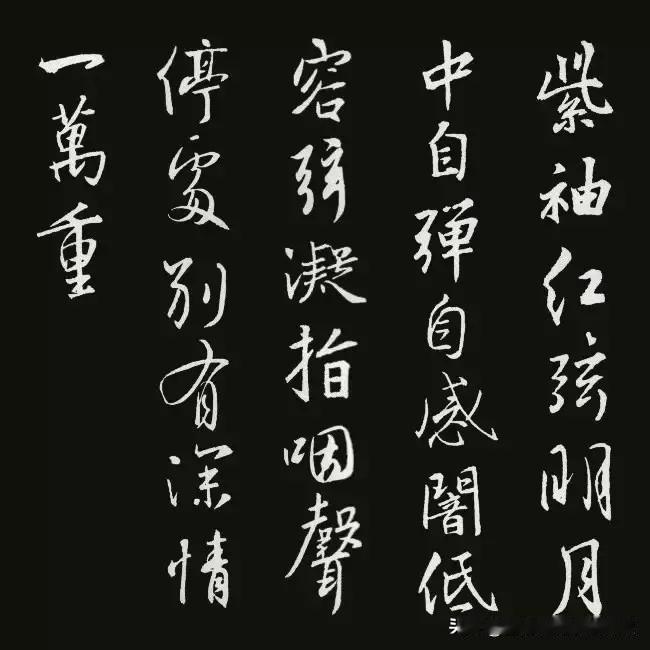 紫袖红弦明月
中自弹自感闇低
容弦凝指咽聲
停处别有深情
一萬重
头